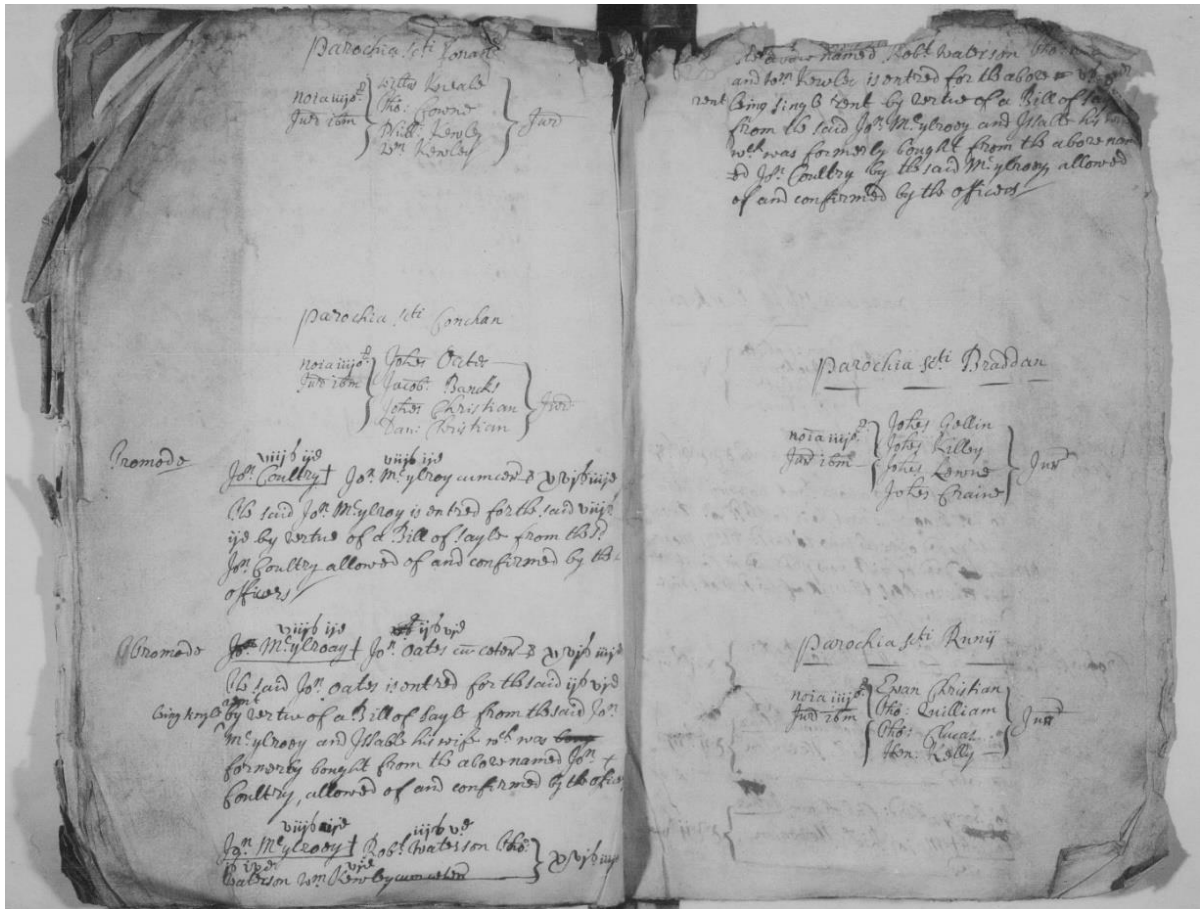 Parochia scti Lonani
noīa iiijor
Jur ibm
Willm Kewale
Tho: Cowne
Will: Kewley
Wm Kewley
Jur
Parochia scti Conchan
noīa iiijor
Jur ibm
Johes Oates
Jacob: Bancks
Johes Christian
Dan: Christian
Jur
Tromode
viijs ijd viijs ijd
Jon Coultry † Jon Mcylroy cum ceter xvjs iiijd
The said Jon Mcylroy is entred for the said viijs
ijd by vertue of a Bill of sayle from the sd
Jon Coultry allowed of and confirmed by the
officers
Tromode
viijs ijd ijs vjd
Jon Mcylrooy † Jon Oates cū ceter xvjs iiijd
The said Jon Oates is entred for the said ijs vjd
being single rent by vertue of a Bill of sayle from the said Jon
Mcylrooy and Issable his wife wch was
formerly bought from the above named Jon
Coultry, allowed of and confirmed by the officers
viijs ijd iijs vd
Jon Mcylrooy † Robt Waterson Tho:
Waterson Wm Kewley cum ceter xvjs iiij
above named Robt Waterson Tho:
and Wm Kewley is entred for the above
rent being single rent by vertue of a Bill of
from the said Jon Mcylrooy and Issable his
wch was formerly bought from the above nam
ed Jon Coultry by the said Mcylrooy allowed
of and confirmed by the officers
Parochia scti Braddan
noīa iiijor
Jur ibm
Johes Gellin
Johes Killey
Johes Lewne
Johes Craine
Jur
Parochia scti Runij
noīa iiijor
Jur ibm
Ewan Christian
Tho: Quilliam
Tho: Clucas
Hen: Kelly
Jur